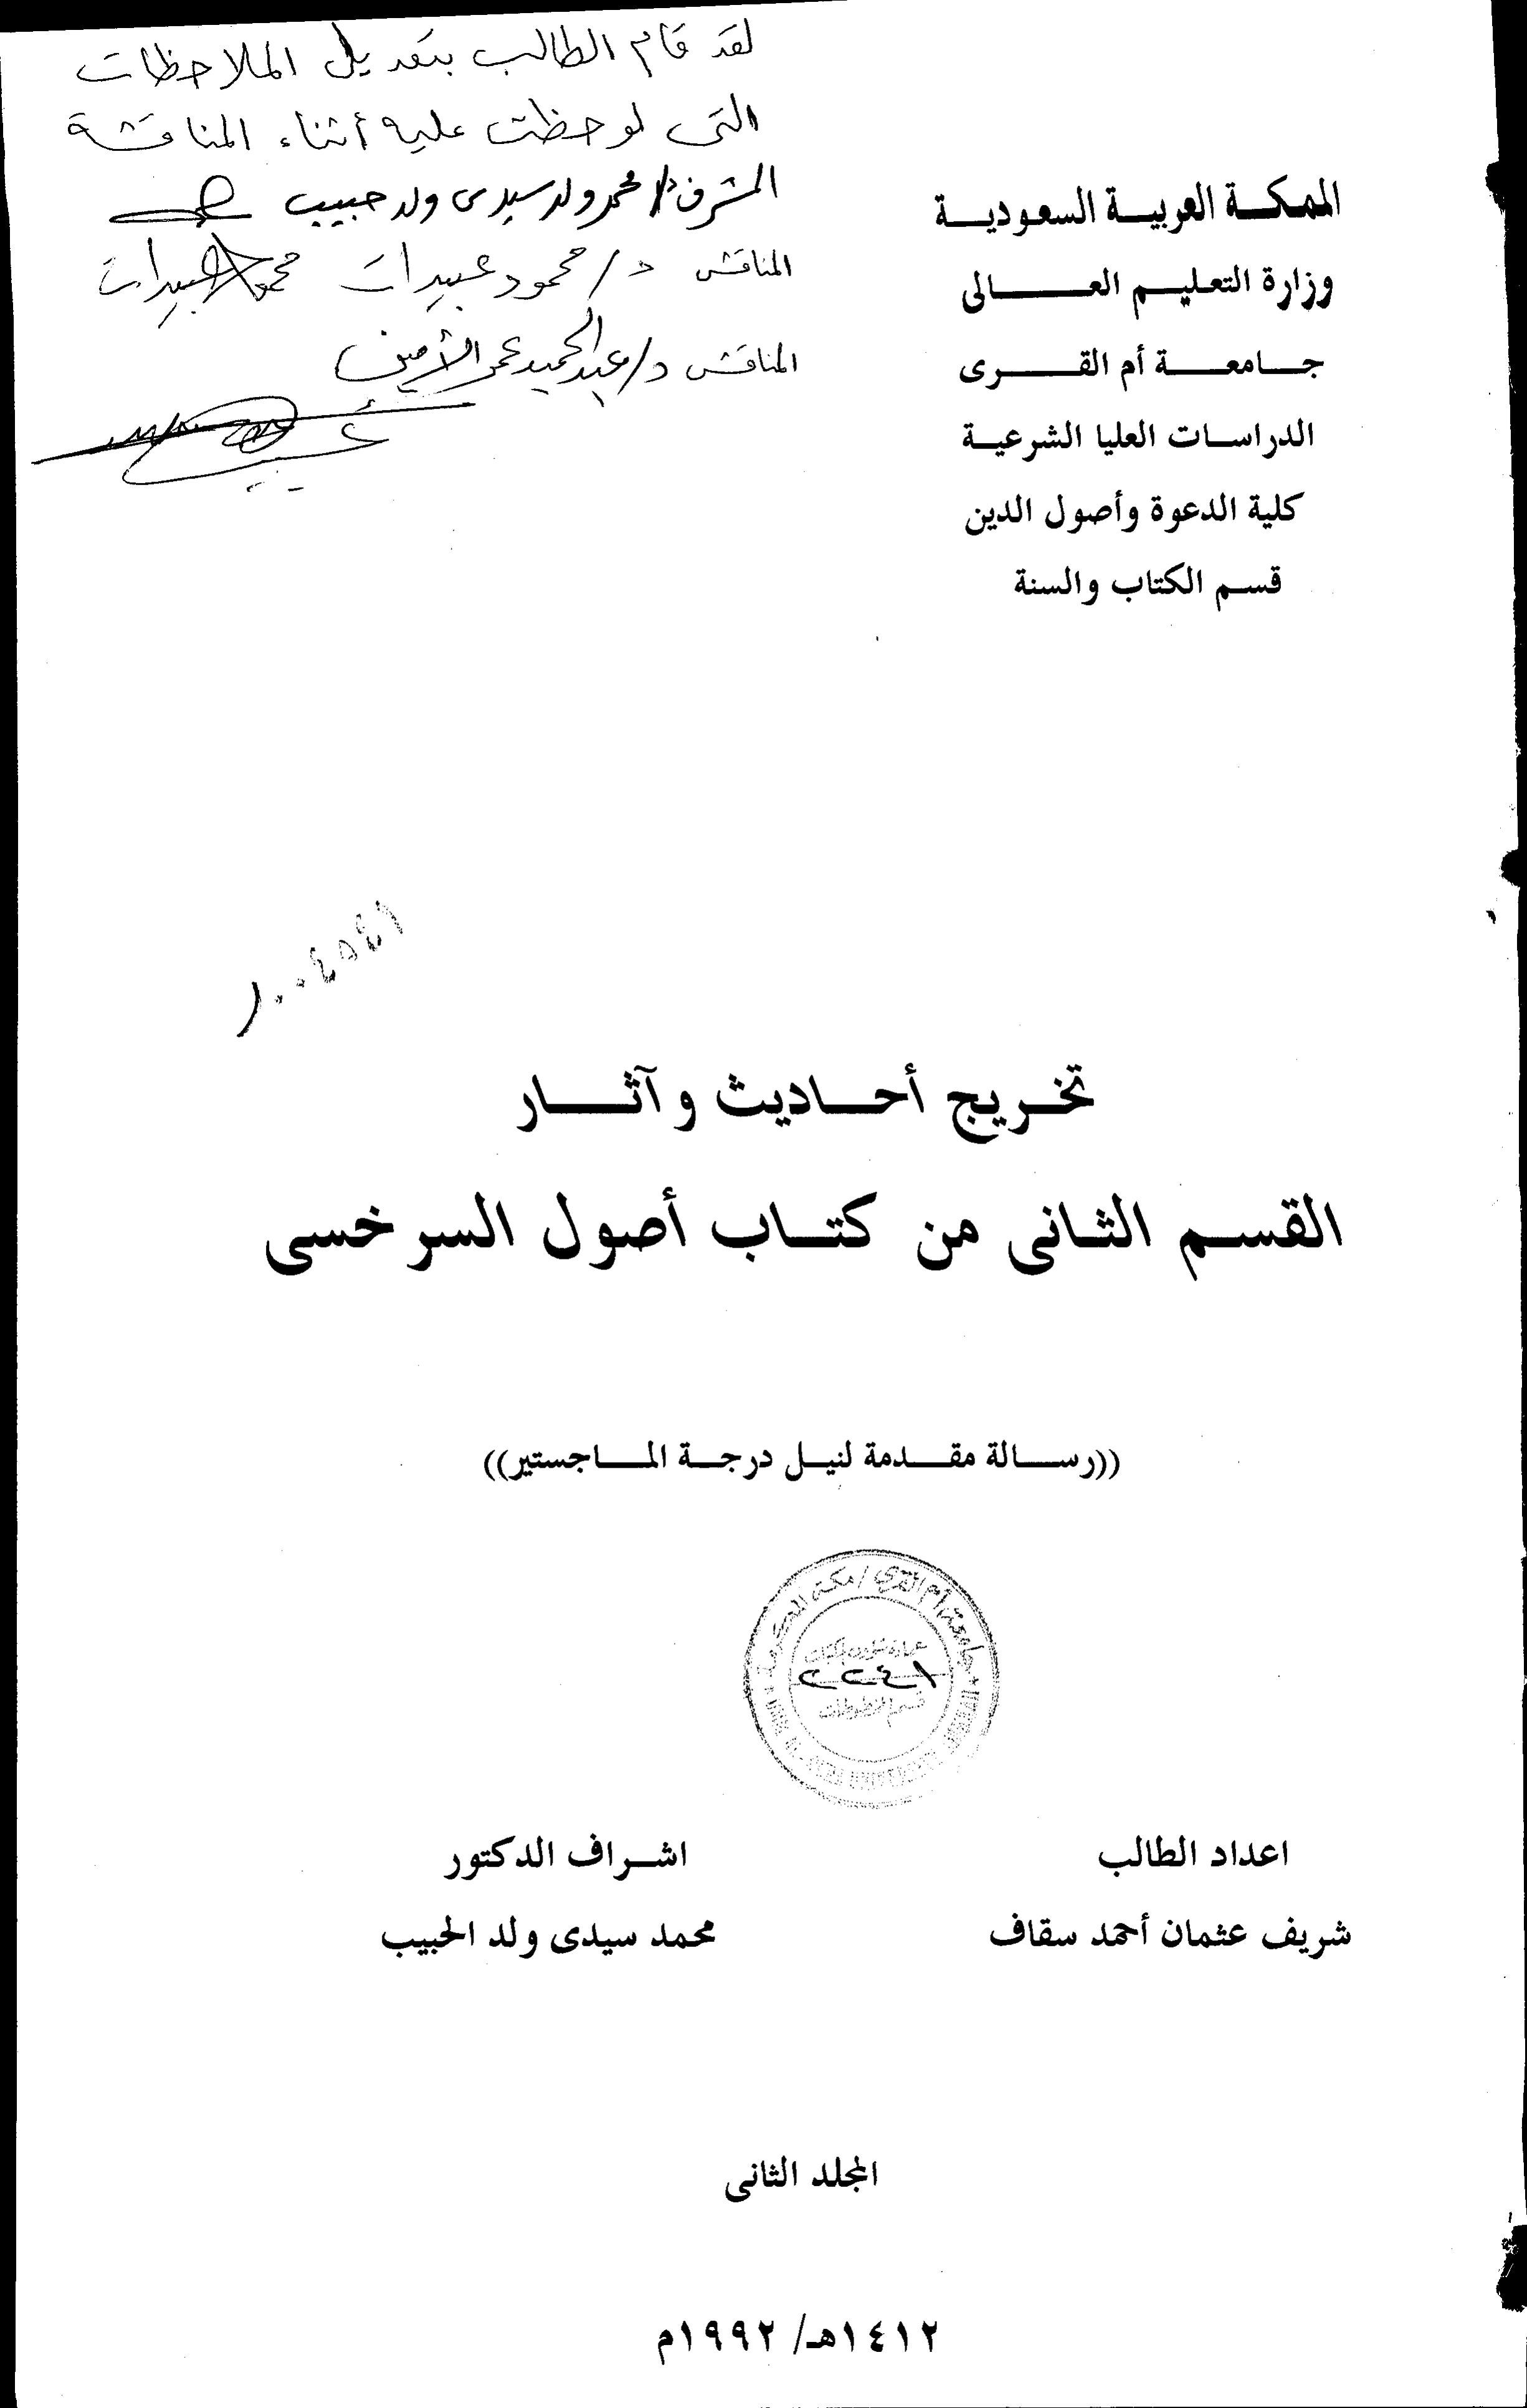 لقد قام الطالب بتعديل الملاحظات
التى لوحظت عليه أثناء المناقشة
المشرف د/ محمد ولد سيدى ولد حبيب
المناقش د/ محمود عبيدات
المناقش د/ عبد الحميد عمر الأمين
الممكـة العربيـة السعوديـة
وزارة التعليـم العـالى
جـامعـة أم القـرى
الدراسـات العليا الشرعيـة
كلية الدعوة وأصول الدين
قسـم الكتاب والسنة
تخـريج أحـاديث وآثـار
القسـم الثـانى من كتـاب أصول السرخسى
((رسـالة مقـدمة لنيـل درجـة المـاجستير))
جامعة أم القرى / مكة المكرمة
عمادة شؤون المكتبات
قسم المخطوطات
اعداد الطالب
شريف عثمان أحمد سقاف
اشـراف الدكتور
محمد سيدى ولد الحبيب
المجلد الثانى
١٤١٢هـ/ ١٩٩٢م